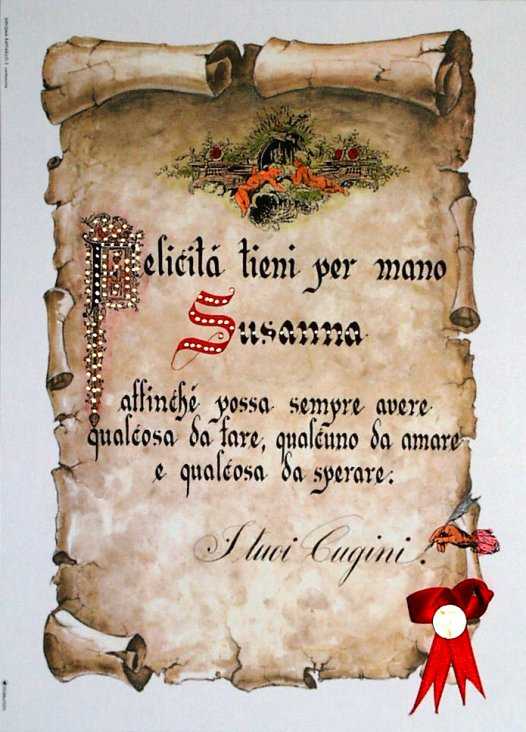 Felicitá tieni per mano
Susanna
affinché possa sempre avere
qualcosa da fare, qualcuno da amare
e qualcosa da sperare.
I tuoi Cugini.